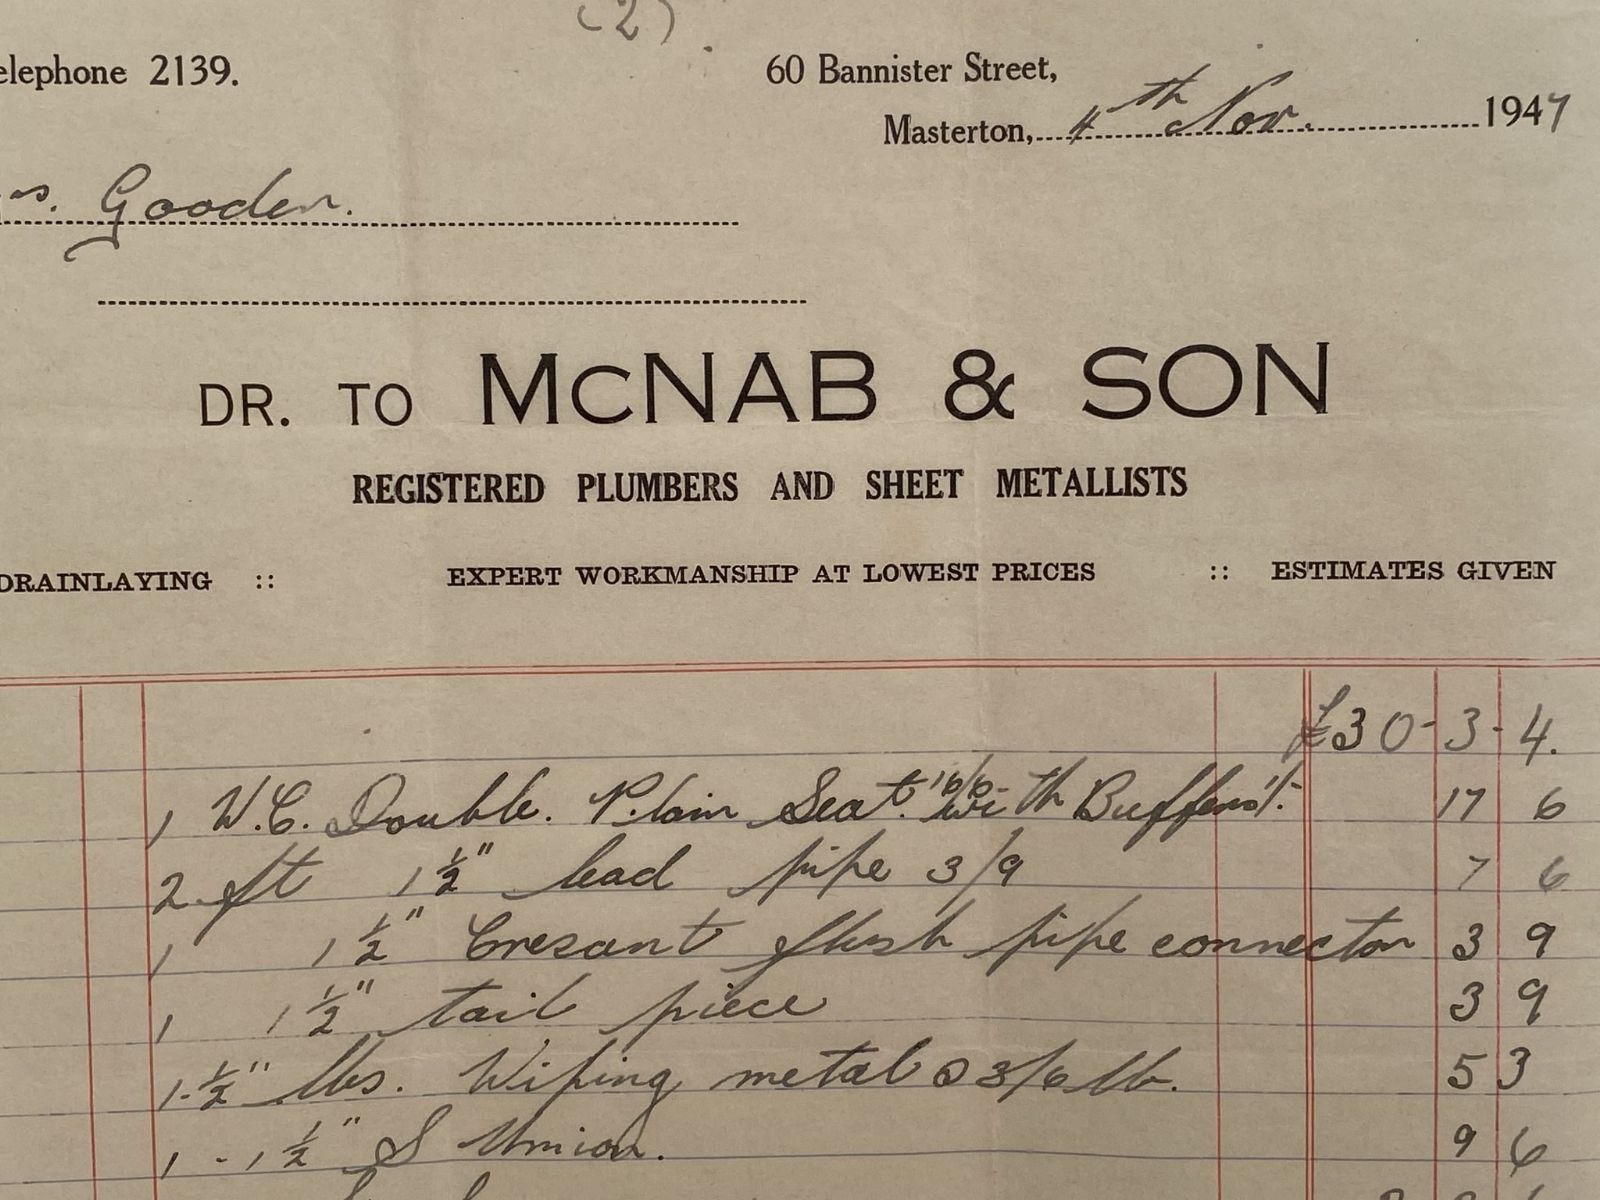 (2)
elephone 2139.
60 Bannister Street,
Masterton, 4th Nov. 1947
s. Gooder.
DR. TO McNAB & SON
REGISTERED PLUMBERS AND SHEET METALLISTS
DRAINLAYING :: EXPERT WORKMANSHIP AT LOWEST PRICES :: ESTIMATES GIVEN
£30-3-4.
1 W.C. Double. Plain Seat. 16/6 with Buffers 1/- 17 6
2 ft 1½" lead pipe 3/9 7 6
1 1½" Cresant flush pipe connector 3 9
1 1½" tail piece 3 9
1-½" lbs. Wiping metal @ 3/6 lb. 5 3
1 - 1½" S Union. 9 6